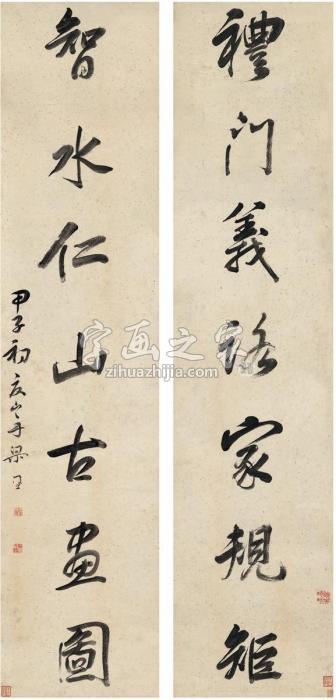 禮門義路家規矩
智水仁山古畫圖
甲子初夏山舟梁
字画之家
zihuazhijia.com